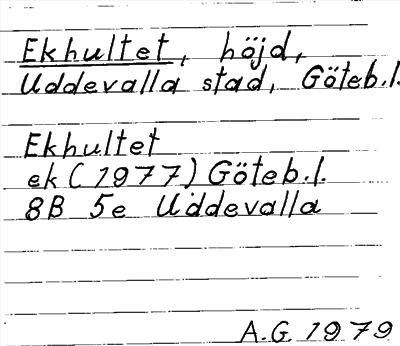 Ekhultet, höjd,
Uddevalla stad, Göteb.l.
Ekhultet
ek (1977) Göteb.l.
8B 5e Uddevalla
A.G. 1979